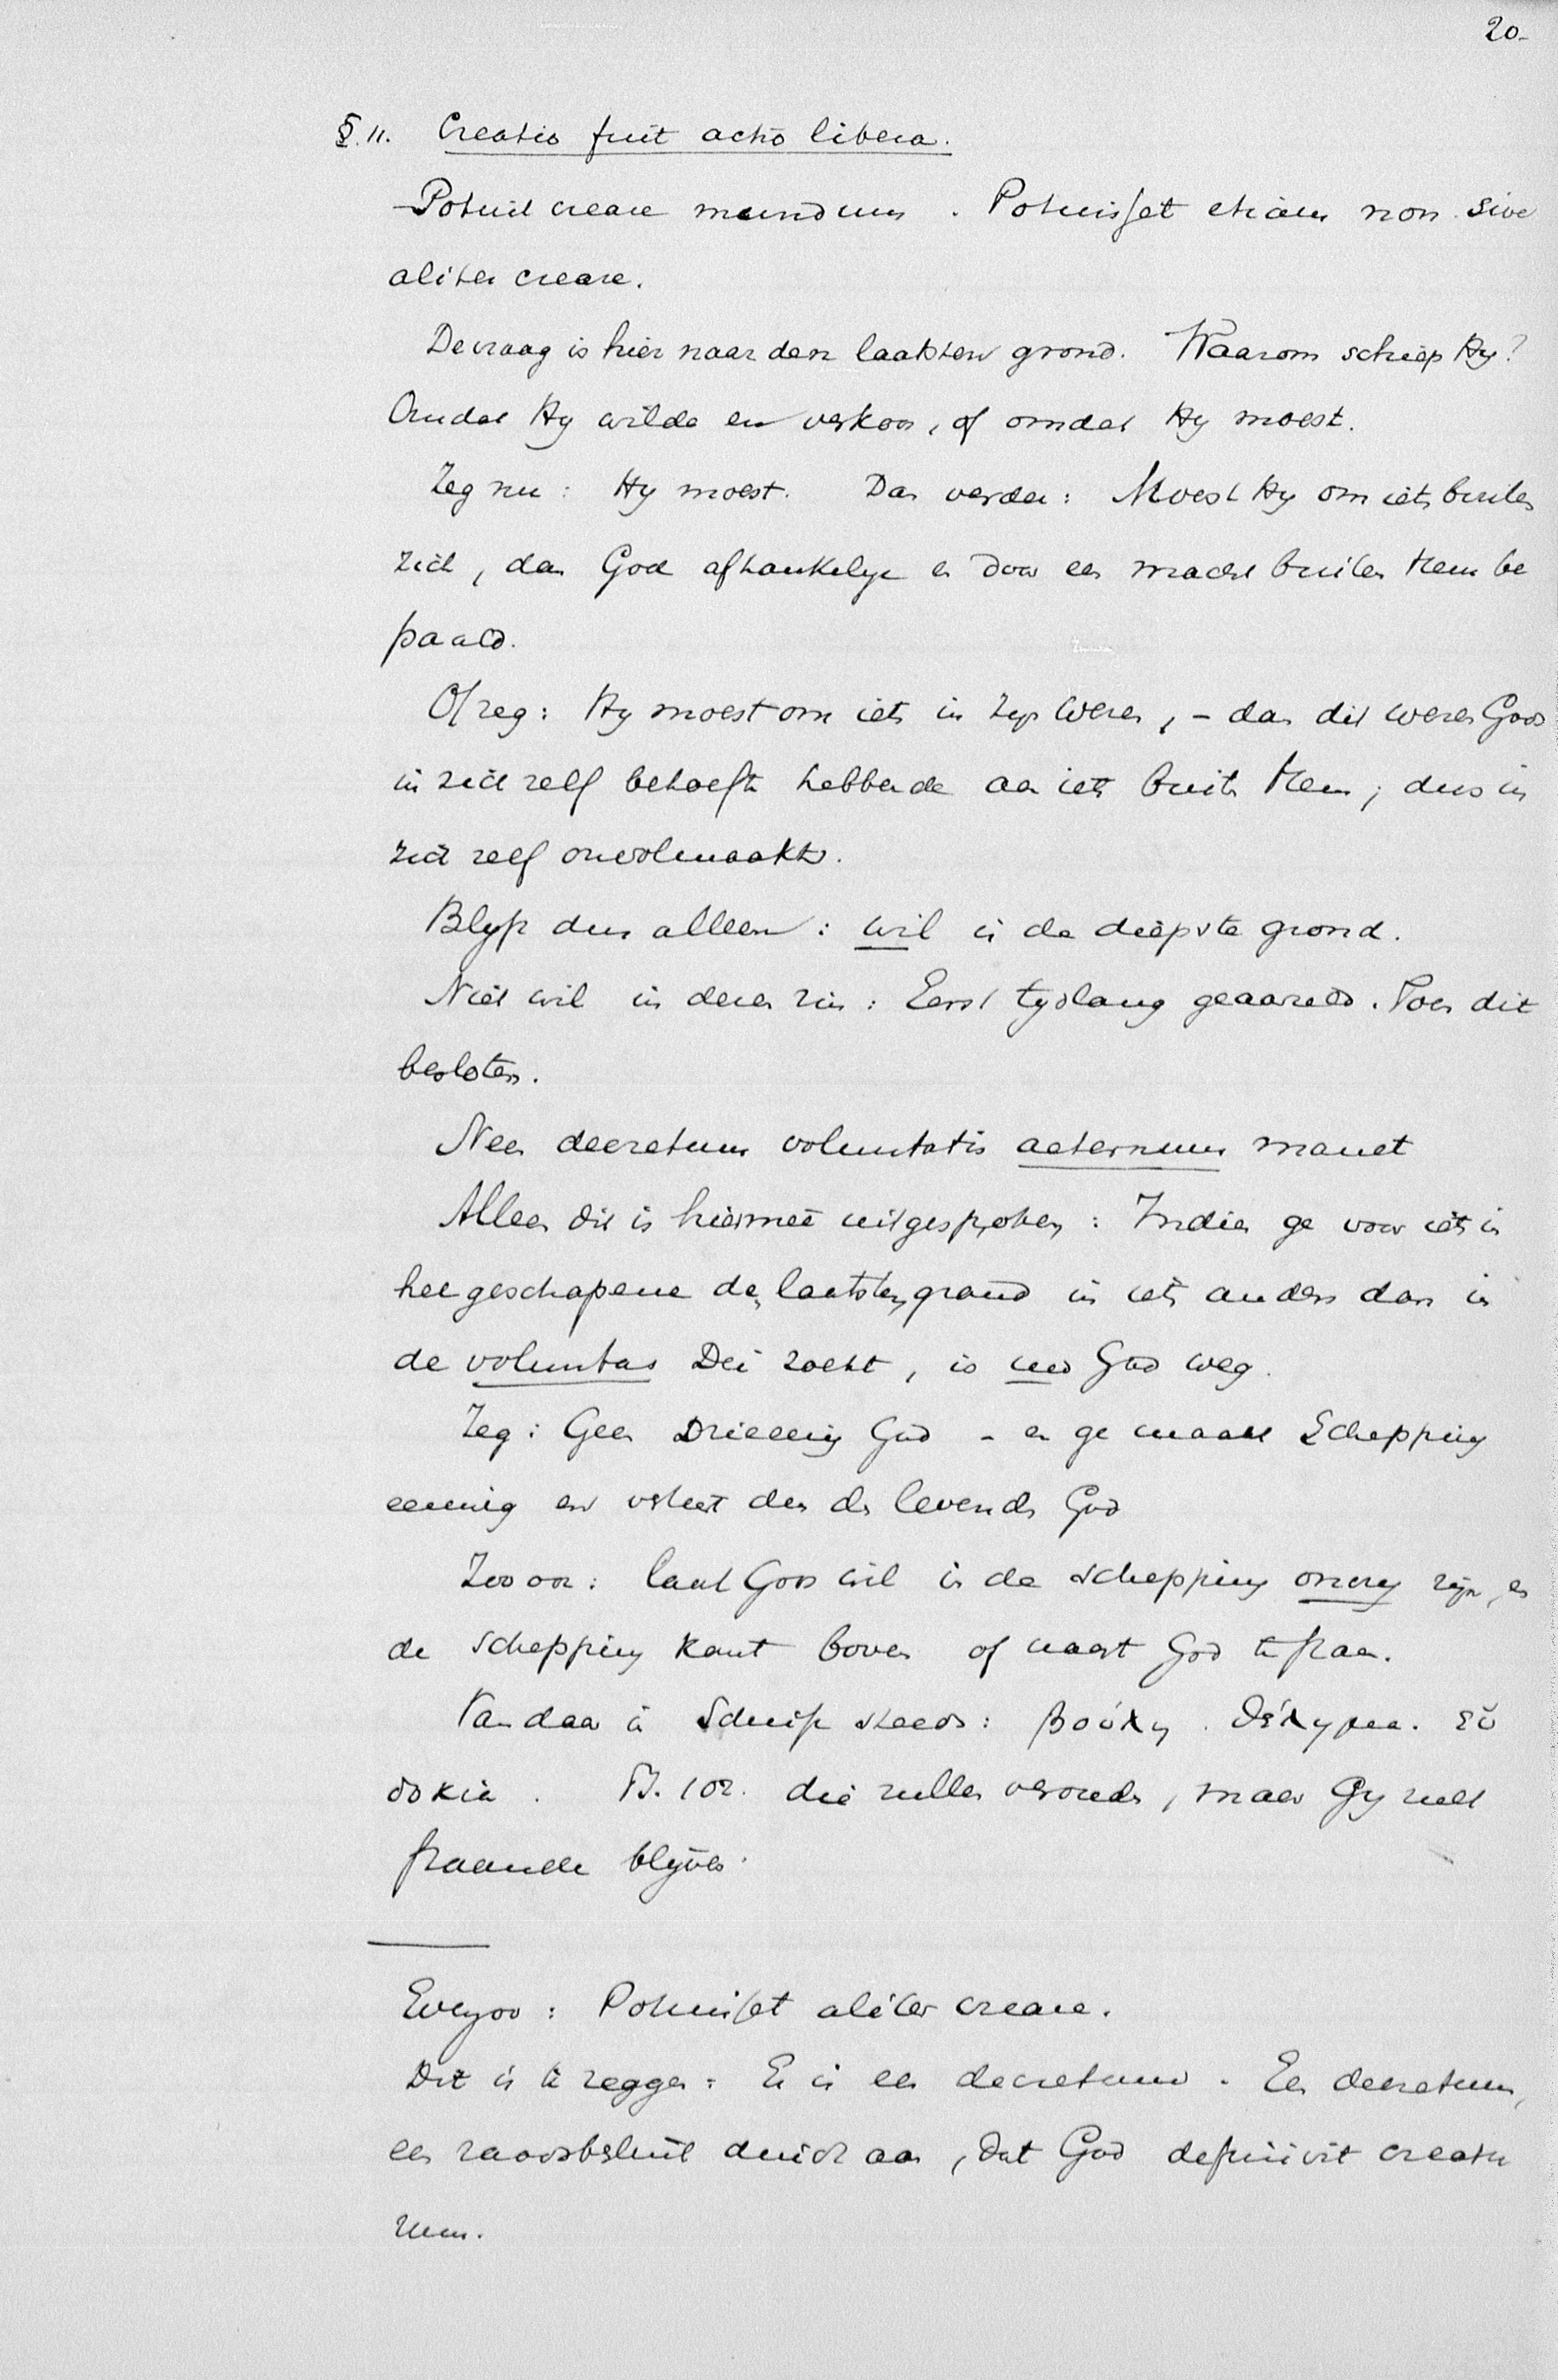 20.
§. 11. Creatio fuit actio libera.
Potuit creare mundum. Potuisset etiam non sive
aliter creare.
De vraag is hier naar den laatsten grond. Waarom schiep Hy?
Omdat Hy wilde en verkoos, of omdat Hy moest.
Zeg nu: Hy moest. Dan verder: Moest Hy om iets buiten
zich, dan God afhankelyk en door een macht buiten Hem be
paald.
Of zeg: Hy moest om iets in zyn wezen, - dan dit wezen Gods
in zich zelf behoefte hebbende aan iets buiten Hem; dus in
zich zelf onvolmaakt.
Blyft dus alleen: wil is de diepste grond.
Niet wil in dezen zin: Eerst tydlang geaarzeld. Toen dit
besloten.
Neen decretum voluntatis aeternum manet
Alleen dit is hiermeê uitgesproken: Indien ge voor iets in
het geschapene den laatsten grond in iets anders dan in
de voluntas Dei zoekt, is uw God weg.
Zeg: Geen Drieeenig God - en ge maakt Schepping
eeuwig en verliest dus den levenden God
Zoo ook: laat Gods wil in de schepping onvry zyn, en
de schepping komt boven of naast God te staan.
Van daar in Schrift steeds: βούλη. θέλημα. εὐ
δοκία. Ps. 102. die zullen verouden, maar Gy zult
staande blyven.
Evenzoo: Potuisset aliter creare.
Dit is te zeggen: Er is een decretum. Een decretum,
een raadsbesluit duidt aan, dat God definivit creatu
rum.